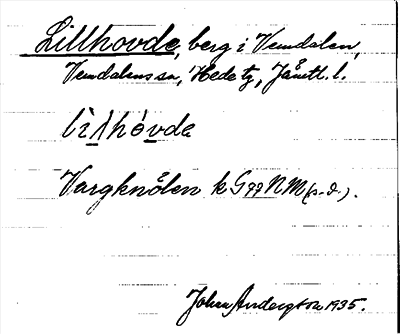 Lillhovde, berg i Vemdalen,
Vemdalens sn, Hede tg, Jämtl. l.
lìlhòvde
Vargknölen k Ggg NM (s. d.).
Johan Andersson 1935.